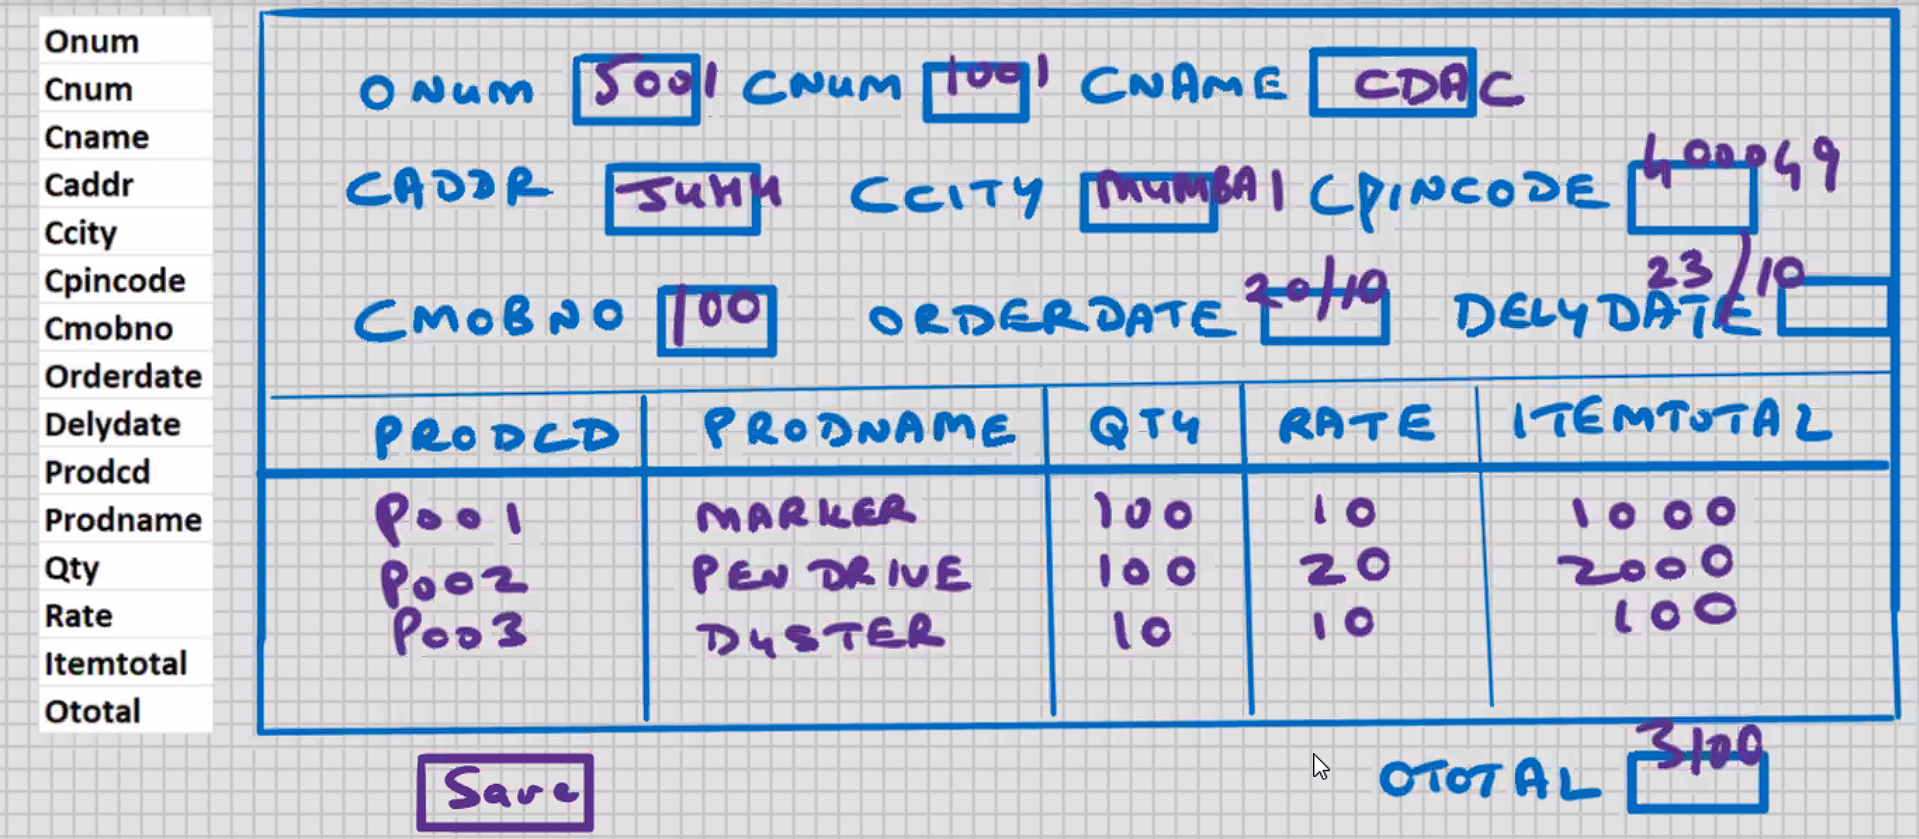 Onum
Cnum
Cname
Caddr
Ccity
Cpincode
Cmobno
Orderdate
Delydate
Prodcd
Prodname
Qty
Rate
Itemtotal
Ototal
ONUM 5001 CNUM 1001 CNAME CDAC
CADDR JUHU CCITY MUMBAI CPINCODE 400049
CMOBNO 100 ORDERDATE 20/10 DELYDATE 23/10
PRODCD PRODNAME QTY RATE ITEMTOTAL
P001 MARKER 100 10 1000
P002 PEN DRIVE 100 20 2000
P003 DUSTER 10 10 100
Save OTOTAL 3100